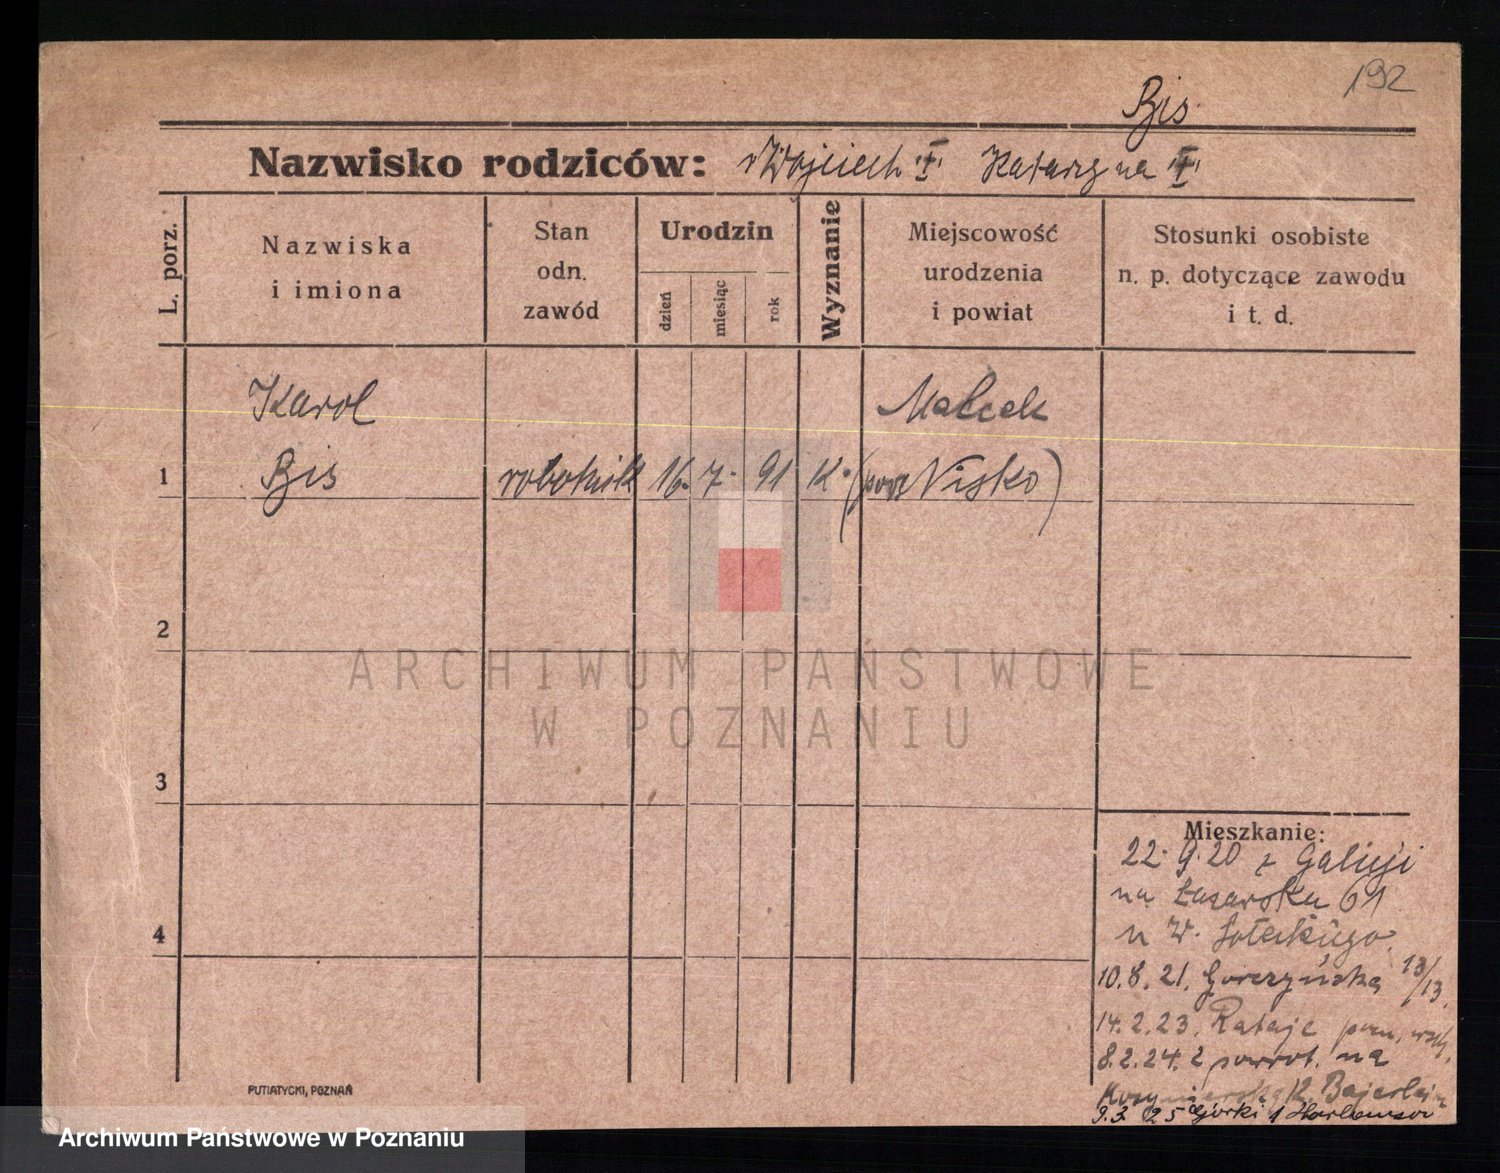 192
Bis
Nazwisko rodziców: Wojciech "†" Katarzyna "†"
L. porz.
Nazwiska
i imiona
Stan
odn.
zawód
Urodzin
dzień
miesiąc
rok
Wyznanie
Miejscowość
urodzenia
i powiat
Stosunki osobiste
n. p. dotyczące zawodu
i t. d.
Karol
Malcek
1
Bis
robotnik
16.
7.
91
K.
(pow Nisko)
2
ARCHIWUM PAŃSTWOWE
W POZNANIU
3
Mieszkanie:
22.9.20 z Galicji
na Łazarska 61
u W.
4
10.8.21. Gorczyńska 13/13.
14.2.23. Rataje pozn.
8.2.24. z powrot. na
12. Bajerlein
9.3.25 Górki 1
PUTIATYCKI, POZNAŃ
Archiwum Państwowe w Poznaniu